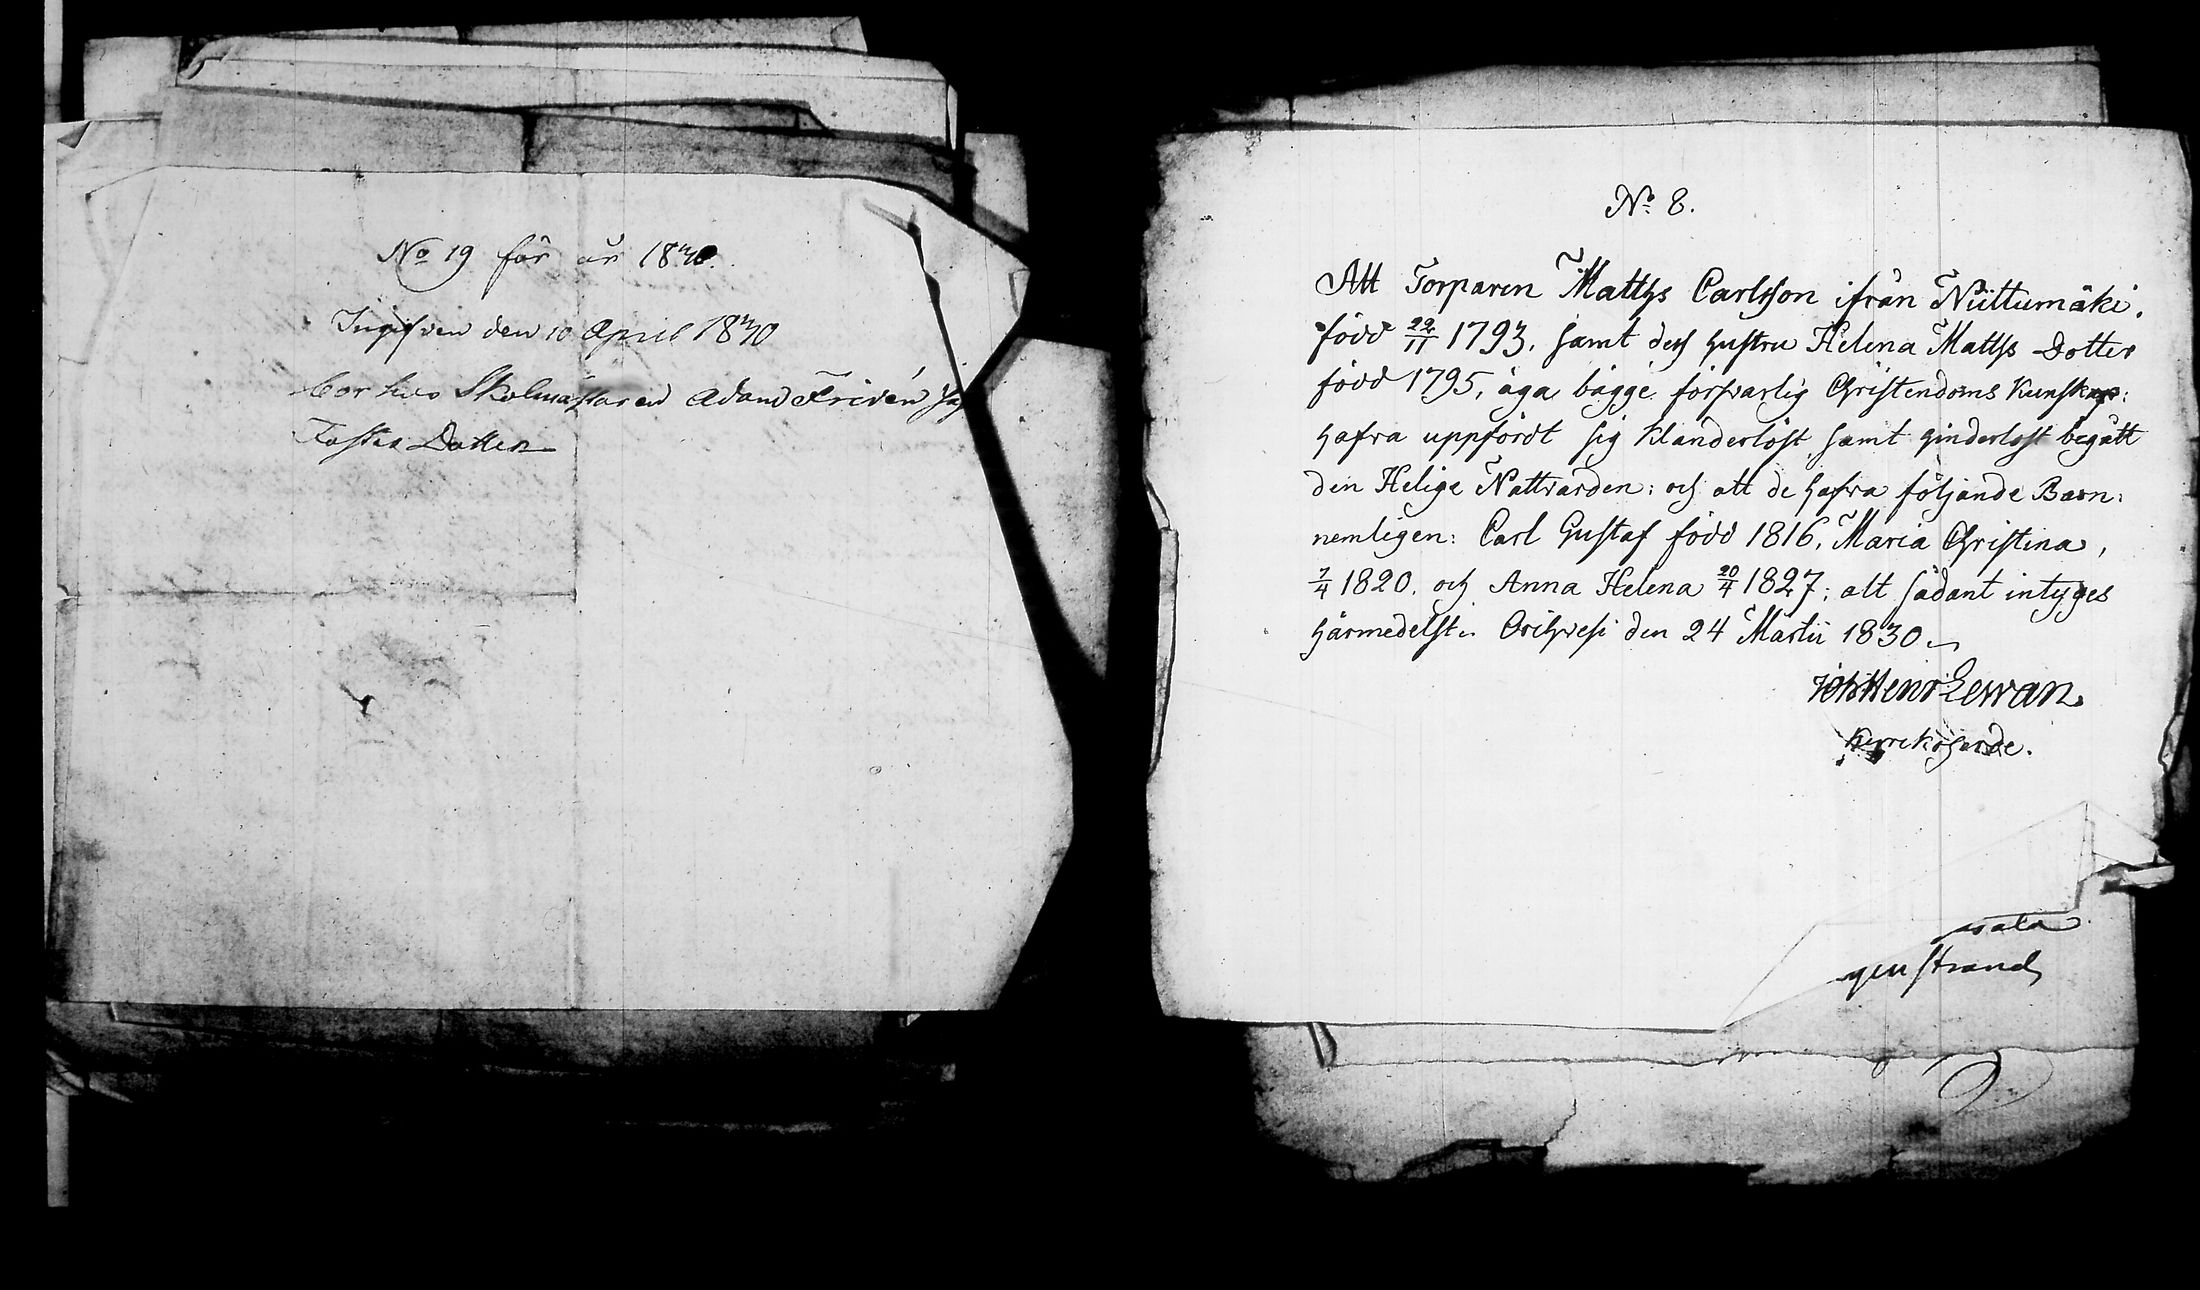 No 19 för år 1830.
Ingifven den 10 April 1830
bor hos Skolmästaren Adam Fridén
Faster Dotter
No 8.
Att Torparen Matths Carlsson ifrån Niittumäki,
född 22/11 1793, samt dess hustru Helena Matths Dotter
född 1795, äga bägge försvarlig Christendoms Kunskap:
hafva uppfördt sig klanderlöst samt hinderlöst begått
den Helige Nattvarden: och att de hafva följande Barn:
nemligen: Carl Gustaf född 1816, Maria Christina,
7/4 1820, och Anna Helena 20/4 1827; alt sådant intyges
härmedelst. Orihvesi den 24 Martii 1830
Joh Henr Lewan
Kyrkoherde.
strand